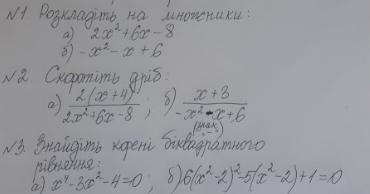 №1 Розкладіть на множники:
а) 2x²+6x-8
б) -x²-x+6
№2 Скоротіть дріб:
а) 2(x+4) / 2x²+6x-8 ; б) x+3 / -x²-x+6
(знак „-")
№3. Знайдіть корені біквадратного
рівняння:
а) x⁴-3x²-4=0 ; б) 6(x²-2)²-5(x²-2)+1=0